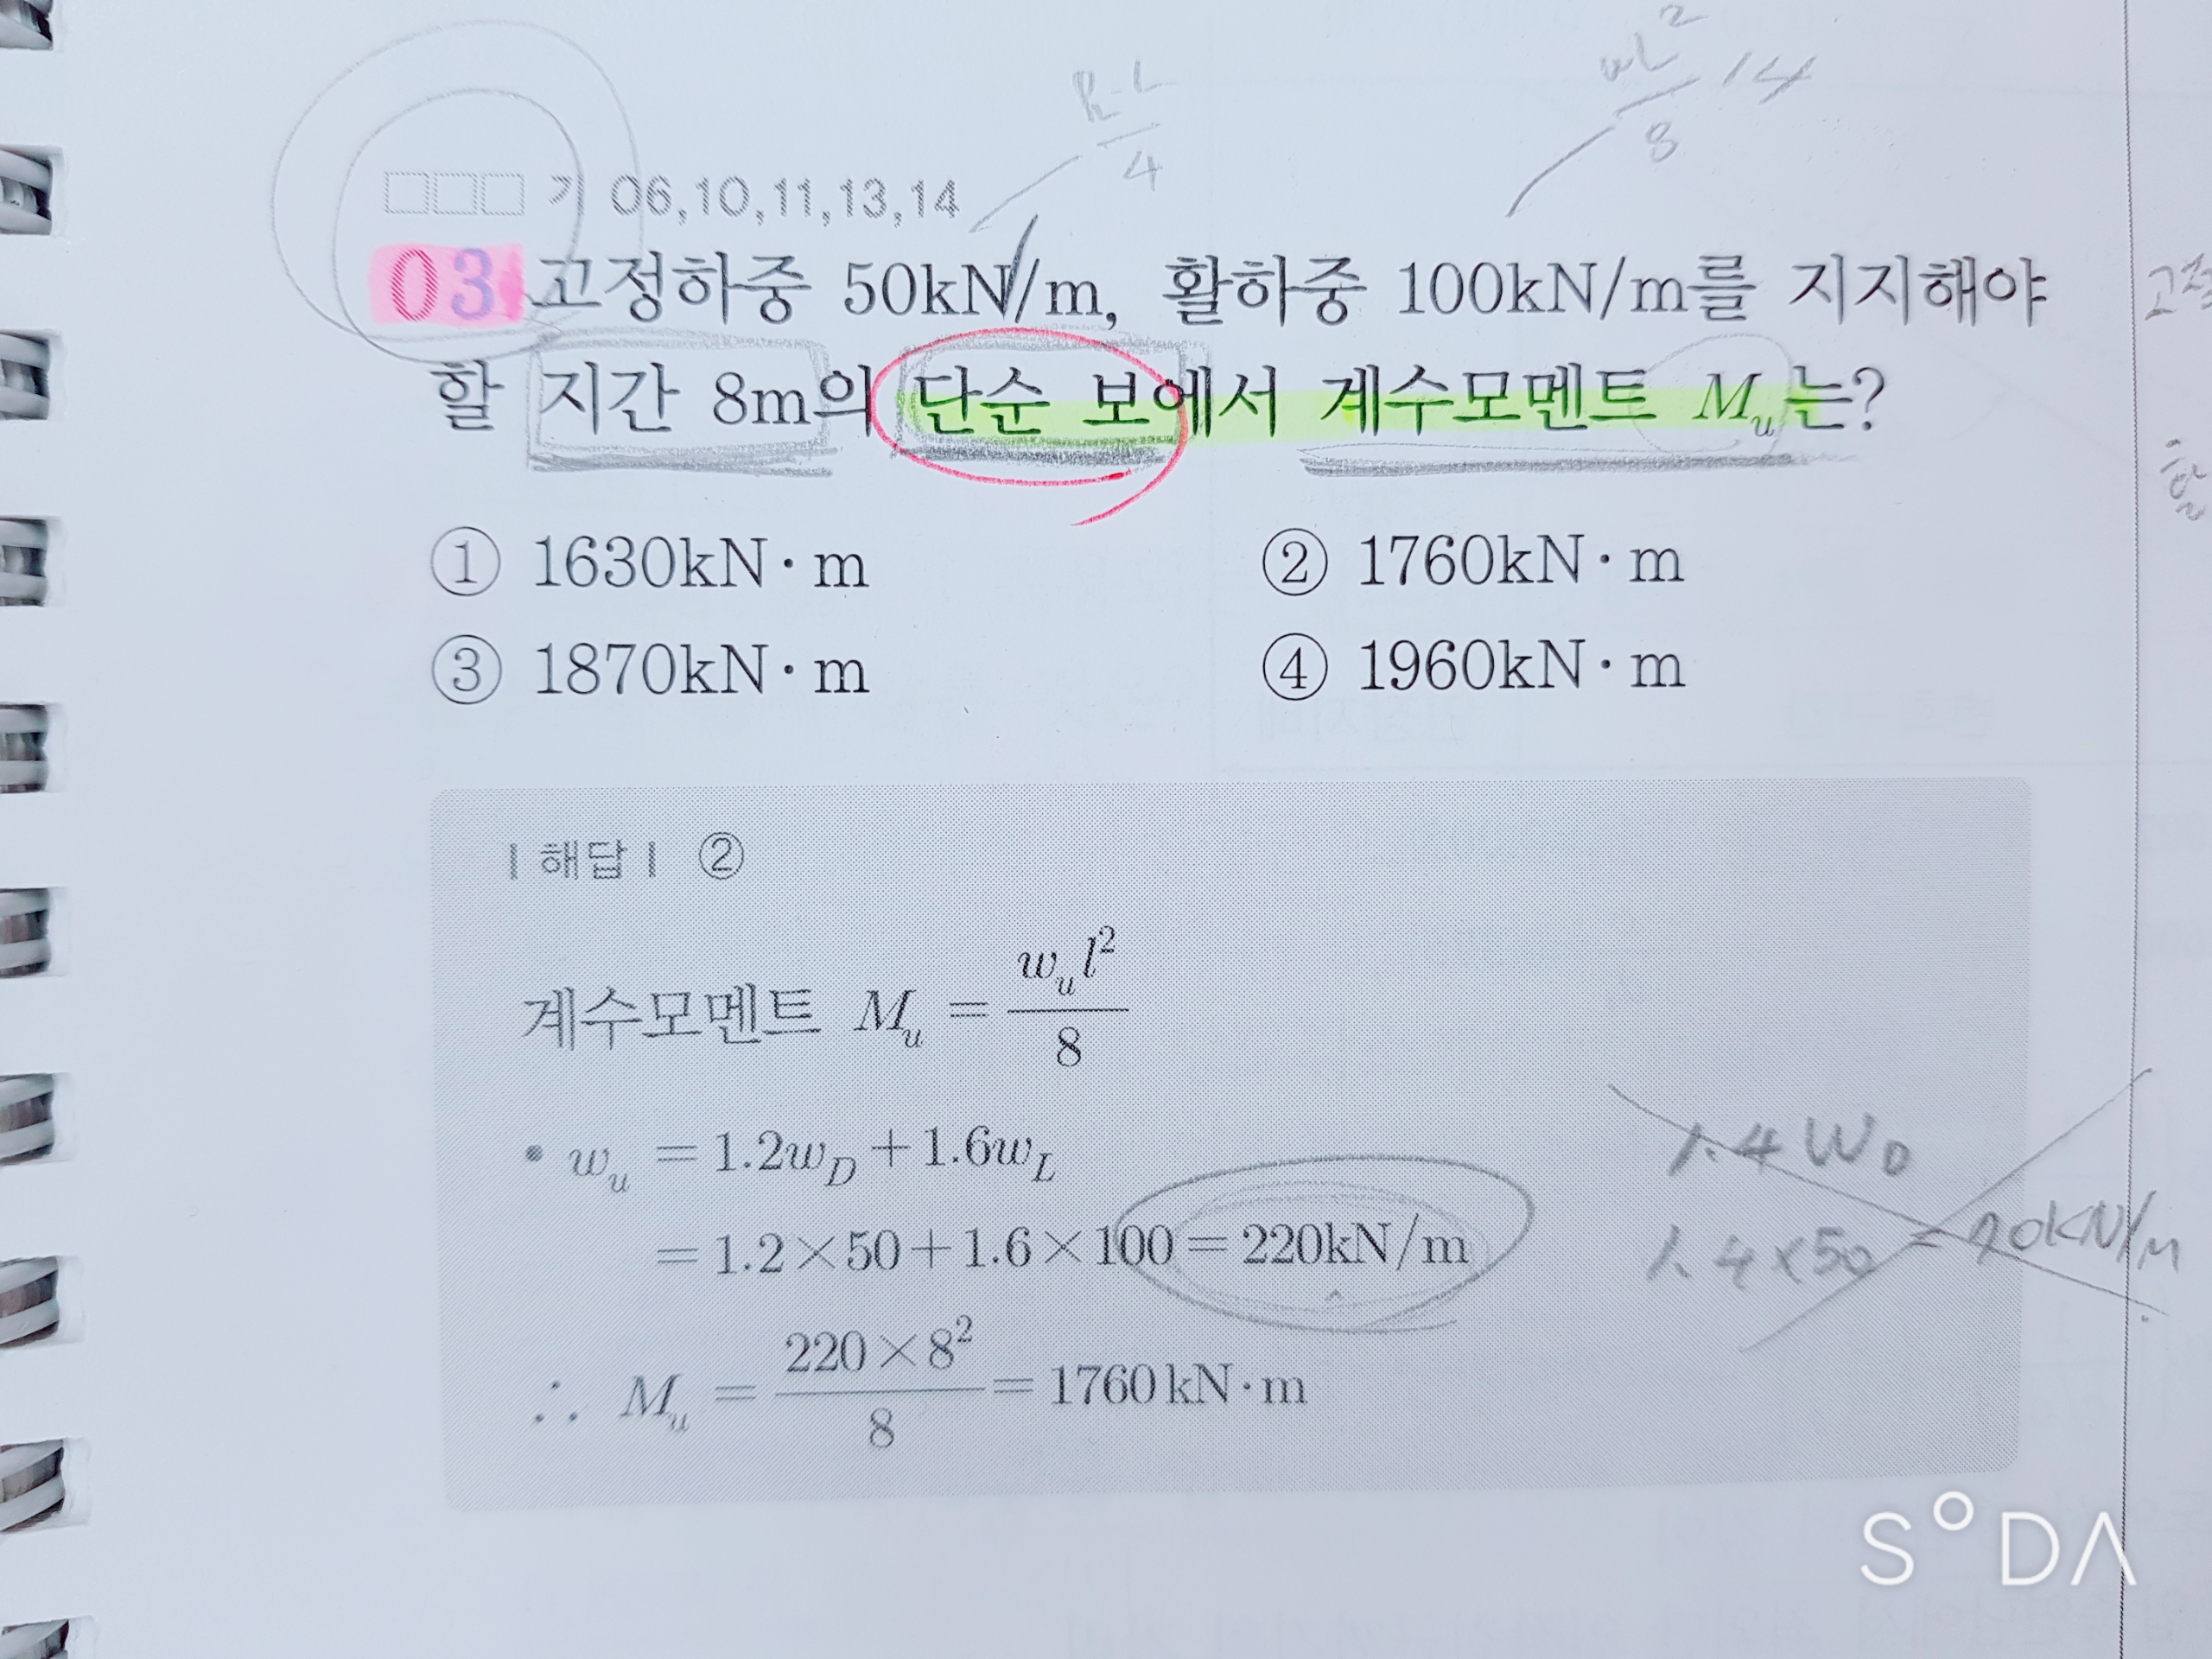 P·L
4
wL²
8
14
기 06,10,11,13,14
03 고정하중 50kN/m, 활하중 100kN/m를 지지해야
할 지간 8m의 단순 보에서 계수모멘트 Mu는?
① 1630kN·m ② 1760kN·m
③ 1870kN·m ④ 1960kN·m
| 해답 | ②
계수모멘트 Mu = wu l² / 8
• wu = 1.2wD + 1.6wL
= 1.2×50+1.6×100=220kN/m
1.4 WD
1.4×50 = 70kN/m
∴ Mu = 220×8² / 8 = 1760kN·m
SODA